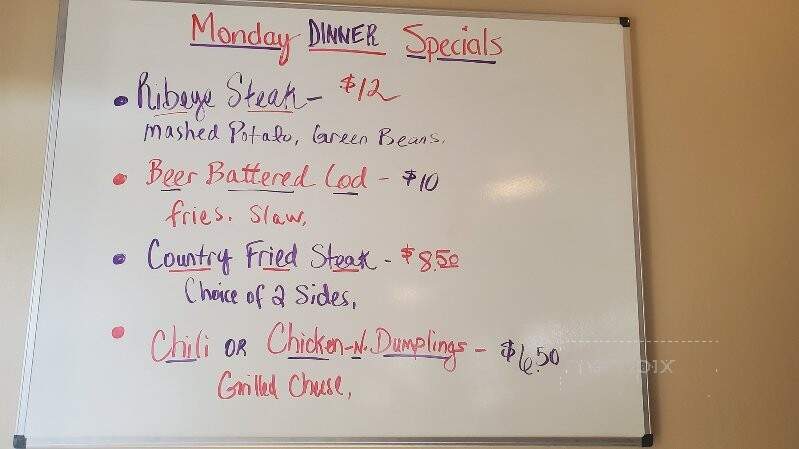 Monday DINNER Specials
• Ribeye Steak - $12
Mashed Potato, Green Beans.
• Beer Battered Cod - $10
fries. Slaw,
• Country Fried Steak - $8.50
Choice of 2 Sides,
• Chili OR Chicken-N. Dumplings - $6.50
Grilled Cheese,